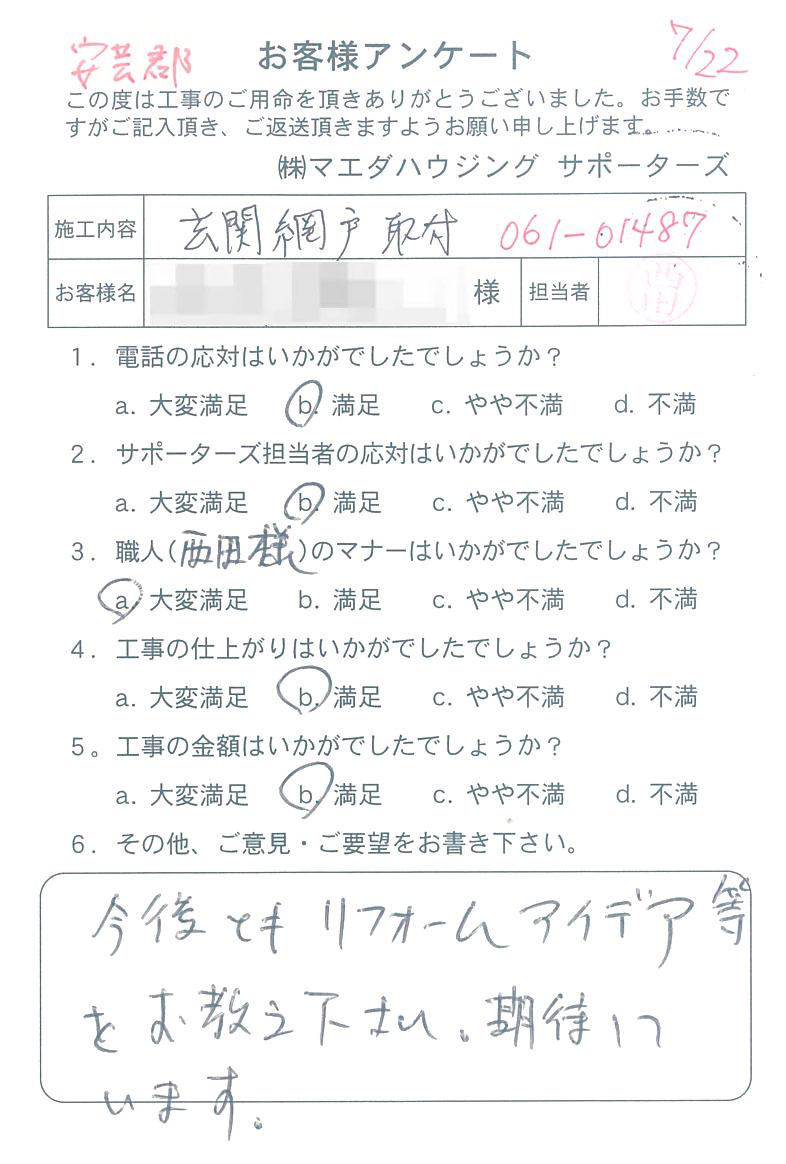 安芸郡 お客様アンケート 7/22
この度は工事のご用命を頂きありがとうございました。お手数で
すがご記入頂き、ご返送頂きますようお願い申し上げます。
㈱マエダハウジング サポーターズ
施工内容 玄関網戸取付 061-01487
お客様名 様 担当者 西田
1. 電話の応対はいかがでしたでしょうか？
a. 大変満足 b. 満足 c. やや不満 d. 不満
2. サポーターズ担当者の応対はいかがでしたでしょうか？
a. 大変満足 b. 満足 c. やや不満 d. 不満
3. 職人(西田様)のマナーはいかがでしたでしょうか？
a. 大変満足 b. 満足 c. やや不満 d. 不満
4. 工事の仕上がりはいかがでしたでしょうか？
a. 大変満足 b. 満足 c. やや不満 d. 不満
5。工事の金額はいかがでしたでしょうか？
a. 大変満足 b. 満足 c. やや不満 d. 不満
6. その他、ご意見・ご要望をお書き下さい。
今後とも リフォームアイデア等
をお教え下さい。期待して
います。